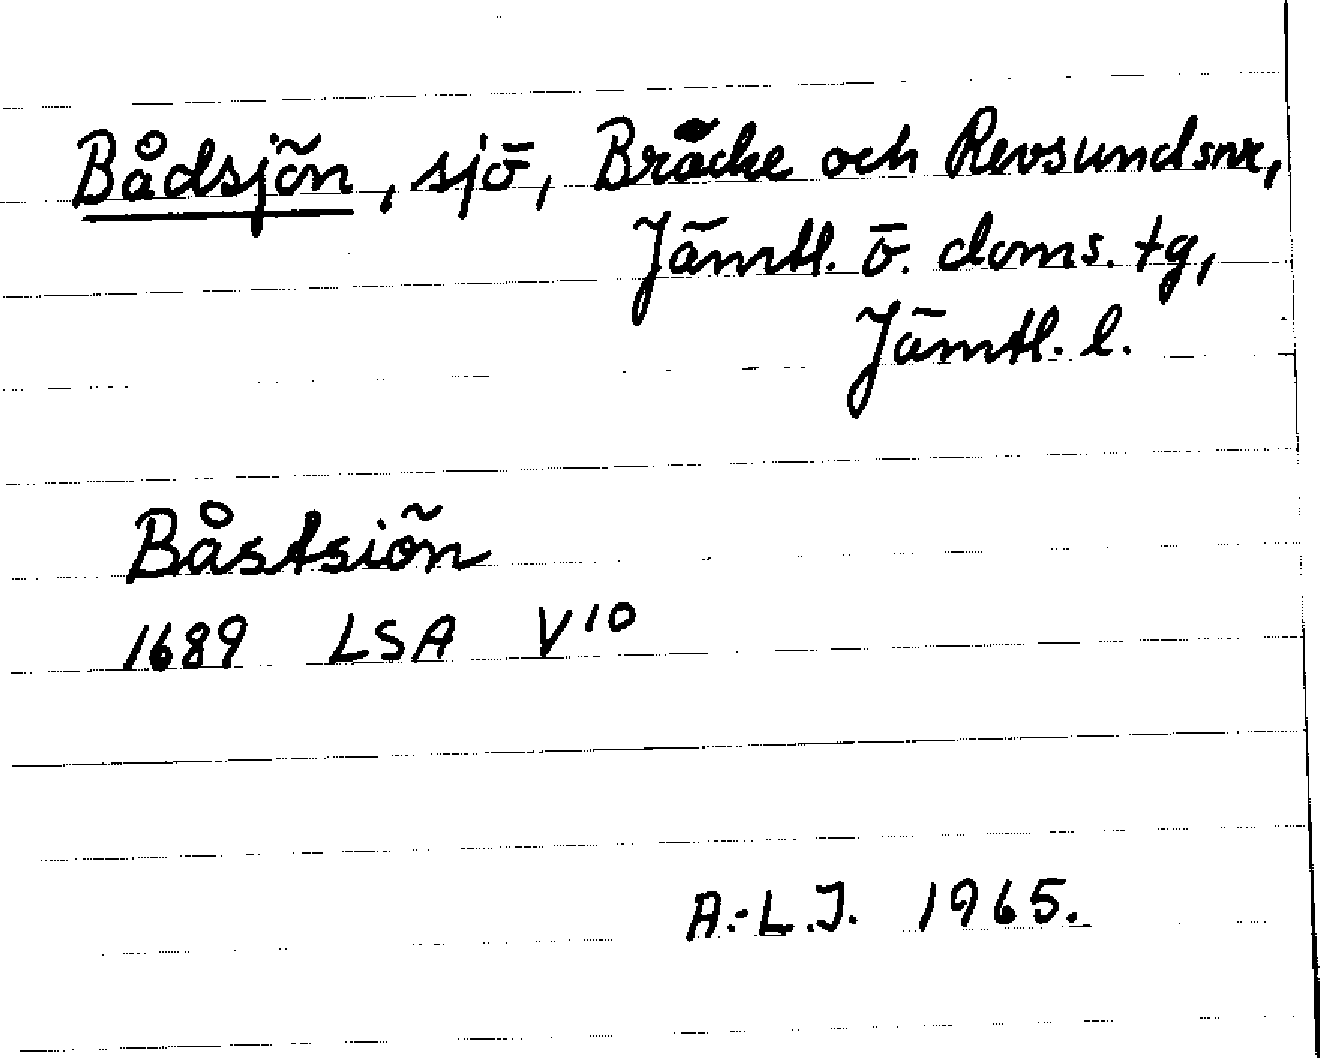 Bådsjön, sjö, Bräcke och Revsundsnr,
Jämtl. ö. doms. tg,
Jämtl. l.
Båstsiön
1689 LSA V10
A.-L.J. 1965.